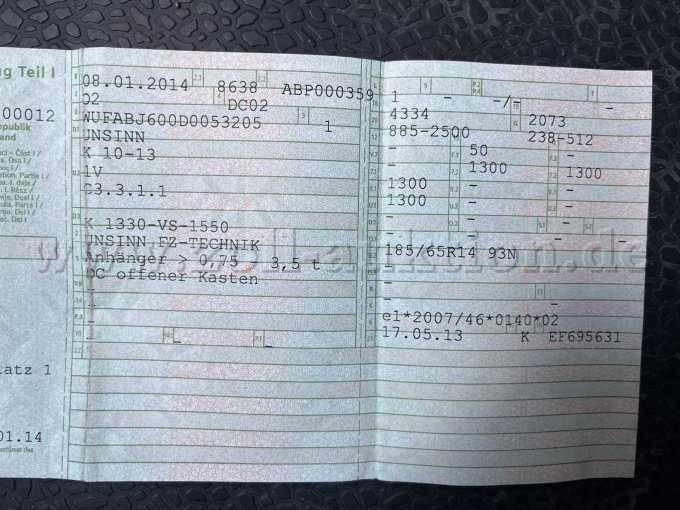 g Teil I
00012
epublik
and
08.01.2014 8638 ABP000359
02 DC02
WUFABJ600D0053205 1
UNSINN
K 10-13
1V
C3.3.1.1
K 1330-VS-1550
UNSINN FZ-TECHNIK
Anhänger > 0,75 - 3,5 t
DC offener Kasten
-
-
- -
1 - -/- -
4334 2073
885-2500 238-512
- 50 -
- 1300 1300
1300 - -
1300 - -
- - -
185/65R14 93N
-
-
- -
e1*2007/46*0140*02
17.05.13 K EF695631
www.zoll-auktion.de
latz 1
01.14